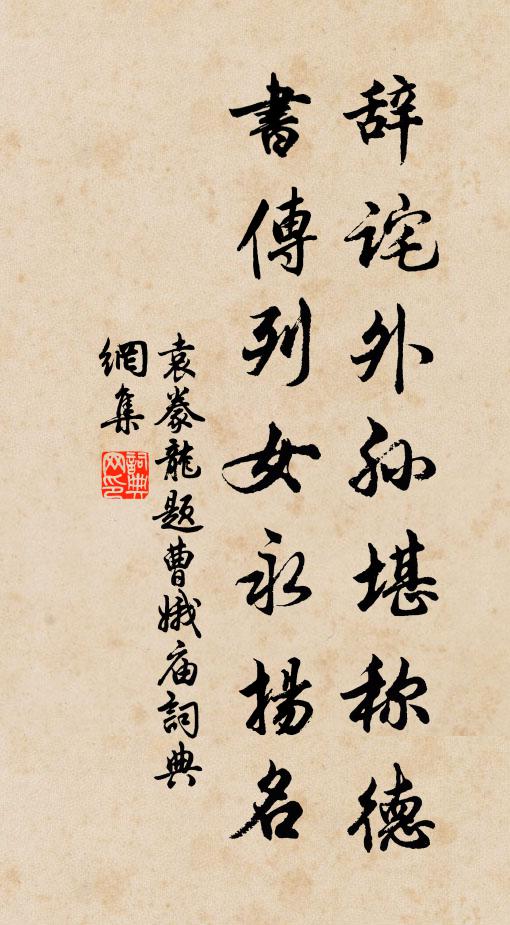 辞诧外孙堪称德
書傳列女永揚名
袁豢龍题曹娥庙詞典
網集
詞典网印